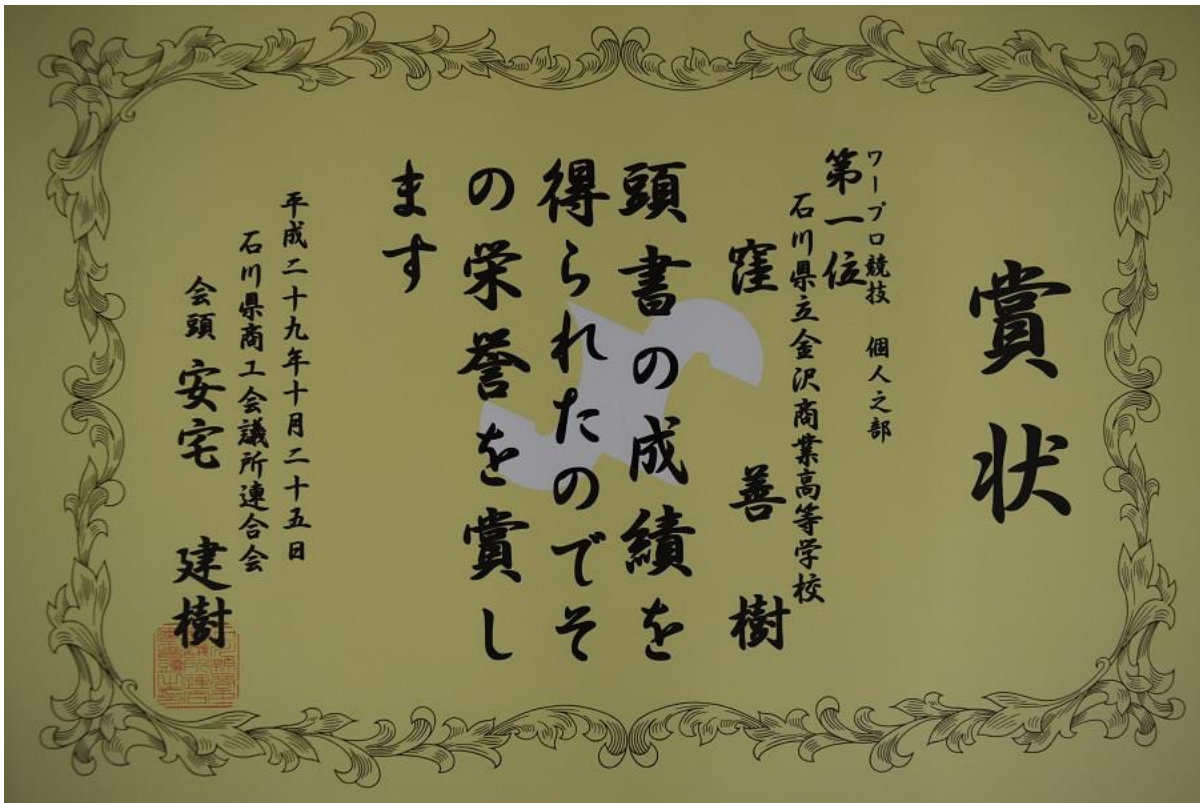 賞状
ワープロ競技 個人之部
第一位
石川県立金沢商業高等学校
窪 善樹
頭書の成績を
得られたのでそ
の栄誉を賞し
ます
平成二十九年十月二十五日
石川県商工会議所連合会
会頭 安宅 建樹